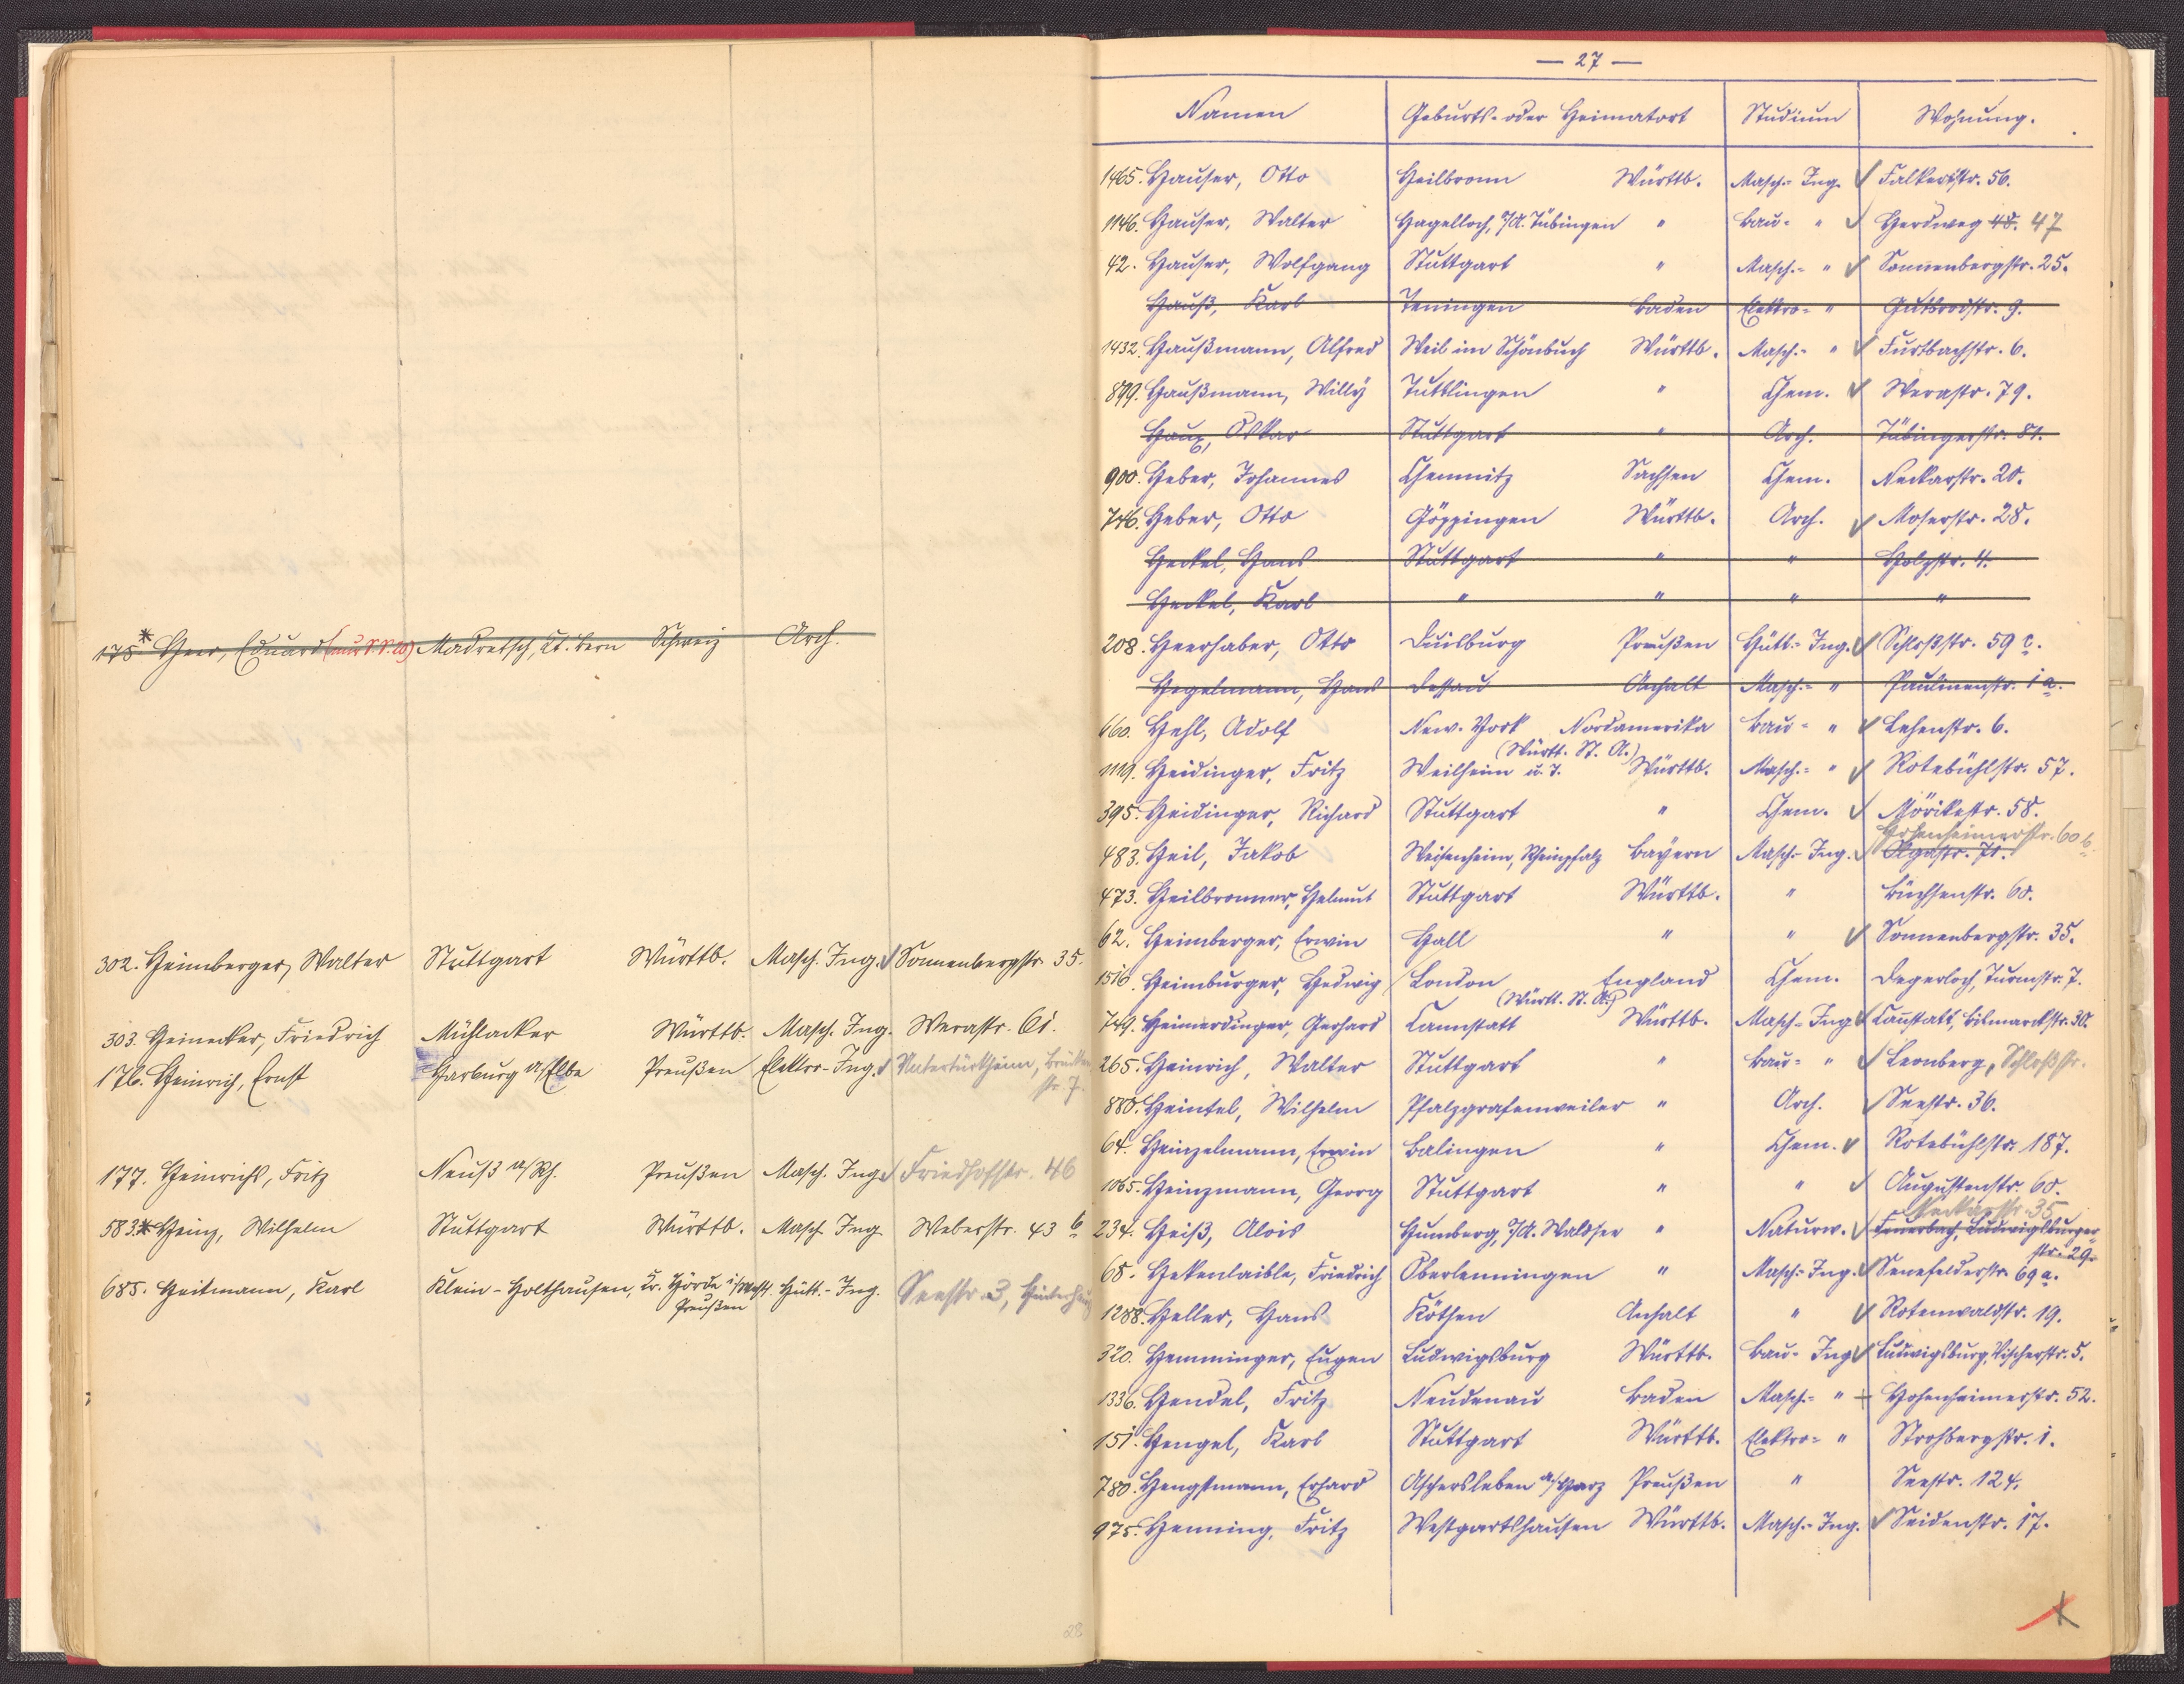 175* Heer, Eduard (nur S.S. 20) Madretsch, Kt. Bern Schweiz Arch.
302. Heimberger, Walter Stuttgart Württb. Masch. Ing. ✓ Sonnenbergstr. 35.
303. Heinecker, Friedrich Mühlacker Württb. Masch. Ing. Werastr. 61.
176. Heinrich, Ernst Harburg a/Elbe Preußen Elektro-Ing. ✓ Untertürkheim, Brücken
str. 7.
177. Heinrichs, Fritz Neuß a/Rh. Preußen Masch. Ing. ✓ Friedhofstr. 46
583.* Heinz, Wilhelm Stuttgart Württb. Masch Ing Weberstr. 43 b
685. Heitmann, Karl Klein-Holthausen, Kr. Hörde i/Westf. Hütt.-Ing. Seestr. 3, Hinterhaus
Preußen
28
— 27 —
Namen Geburts- oder Heimatort Studium Wohnung.
1465. Hauser, Otto Heilbronn Württb. Masch.-Ing. ✓ Falkertstr. 56.
1146. Hauser, Walter Hagelloch, O/A. Tübingen " Bau- " ✓ Herdweg 48. 47
42. Hauser, Wolfgang Stuttgart " Masch.- " ✓ Sonnenbergstr. 25.
Hauß, Karl Teningen Baden Elektro- " Gutbrodstr. 9.
1432. Haußmann, Alfred Weil im Schönbuch Württb. Masch.- " ✓ Furtbachstr. 6.
899. Haußmann, Willy Tuttlingen " Chem. ✓ Werastr. 79.
Haux, Oskar Stuttgart " Arch. Tübingerstr. 81.
900. Heber, Johannes Chemnitz Sachsen Chem. Neckarstr. 20.
746. Heber, Otto Göppingen Württb. Arch. ✓ Moserstr. 28.
Heckel, Hans Stuttgart " " Holzstr. 4.
Heckel, Karl " " " "
208. Heerhaber, Otto Duisburg Preußen Hütt.-Ing. ✓ Schloßstr. 59 c.
Hegelmann, Hans Dessau Anhalt Masch.- " Paulinenstr. 1 a.
660. Hehl, Adolf New-York Nordamerika Bau- " ✓ Lehenstr. 6.
(Württ. St. A.)
1119. Heidinger, Fritz Weilheim u. T. Württb. Masch.- " ✓ Rotebühlstr. 57.
395. Heidinger, Richard Stuttgart " Chem. ✓ Mörikestr. 58.
Hohenheimerstr. 60 b
483. Heil, Jakob Weisenheim, Rheinpfalz Bayern Masch.-Ing. ✓ Olgastr. 71.
473. Heilbronner, Helmut Stuttgart Württb. " Büchsenstr. 60.
62. Heimberger, Erwin Hall " " ✓ Sonnenbergstr. 35.
1516. Heimburger, Hedwig London England Chem. Degerloch, Turmstr. 7.
(Württ. St. A.)
749. Heimerdinger, Gerhard Cannstatt Württb. Masch-Ing ✓ Cannstatt, Bismarckstr. 30.
265. Heinrich, Walter Stuttgart " Bau- " ✓ Leonberg, Schloßstr.
880. Heintel, Wilhelm Pfalzgrafenweiler " Arch. ✓ Seestr. 36.
64. Heinzelmann, Erwin Balingen " Chem. ✓ Rotebühlstr. 187.
1065. Heinzmann, Georg Stuttgart " " ✓ Augustenstr. 60.
Neckarstr. 35
234. Heiß, Alois Humberg, O/A. Waldsee " Naturw. ✓ Feuerbach, Ludwigsburger-
str. 29.
68. Hekenlaible, Friedrich Oberlenningen " Masch.-Ing. ✓ Senefelderstr. 69 a.
1288. Heller, Hans Köthen Anhalt " ✓ Rotenwaldstr. 19.
320. Hemminger, Eugen Ludwigsburg Württb. Bau-Ing ✓ Ludwigsburg, Vischerstr. 5.
1336. Hendel, Fritz Neudenau Baden Masch.- " + Hohenheimerstr. 52.
151. Hengel, Karl Stuttgart Württb. Elektro- " Strohbergstr. 1.
780. Hengstmann, Erhard Aschersleben a/Harz Preußen " Seestr. 124.
975. Henning, Fritz Westgartshausen Württb. Masch.-Ing. ✓ Seidenstr. 17.